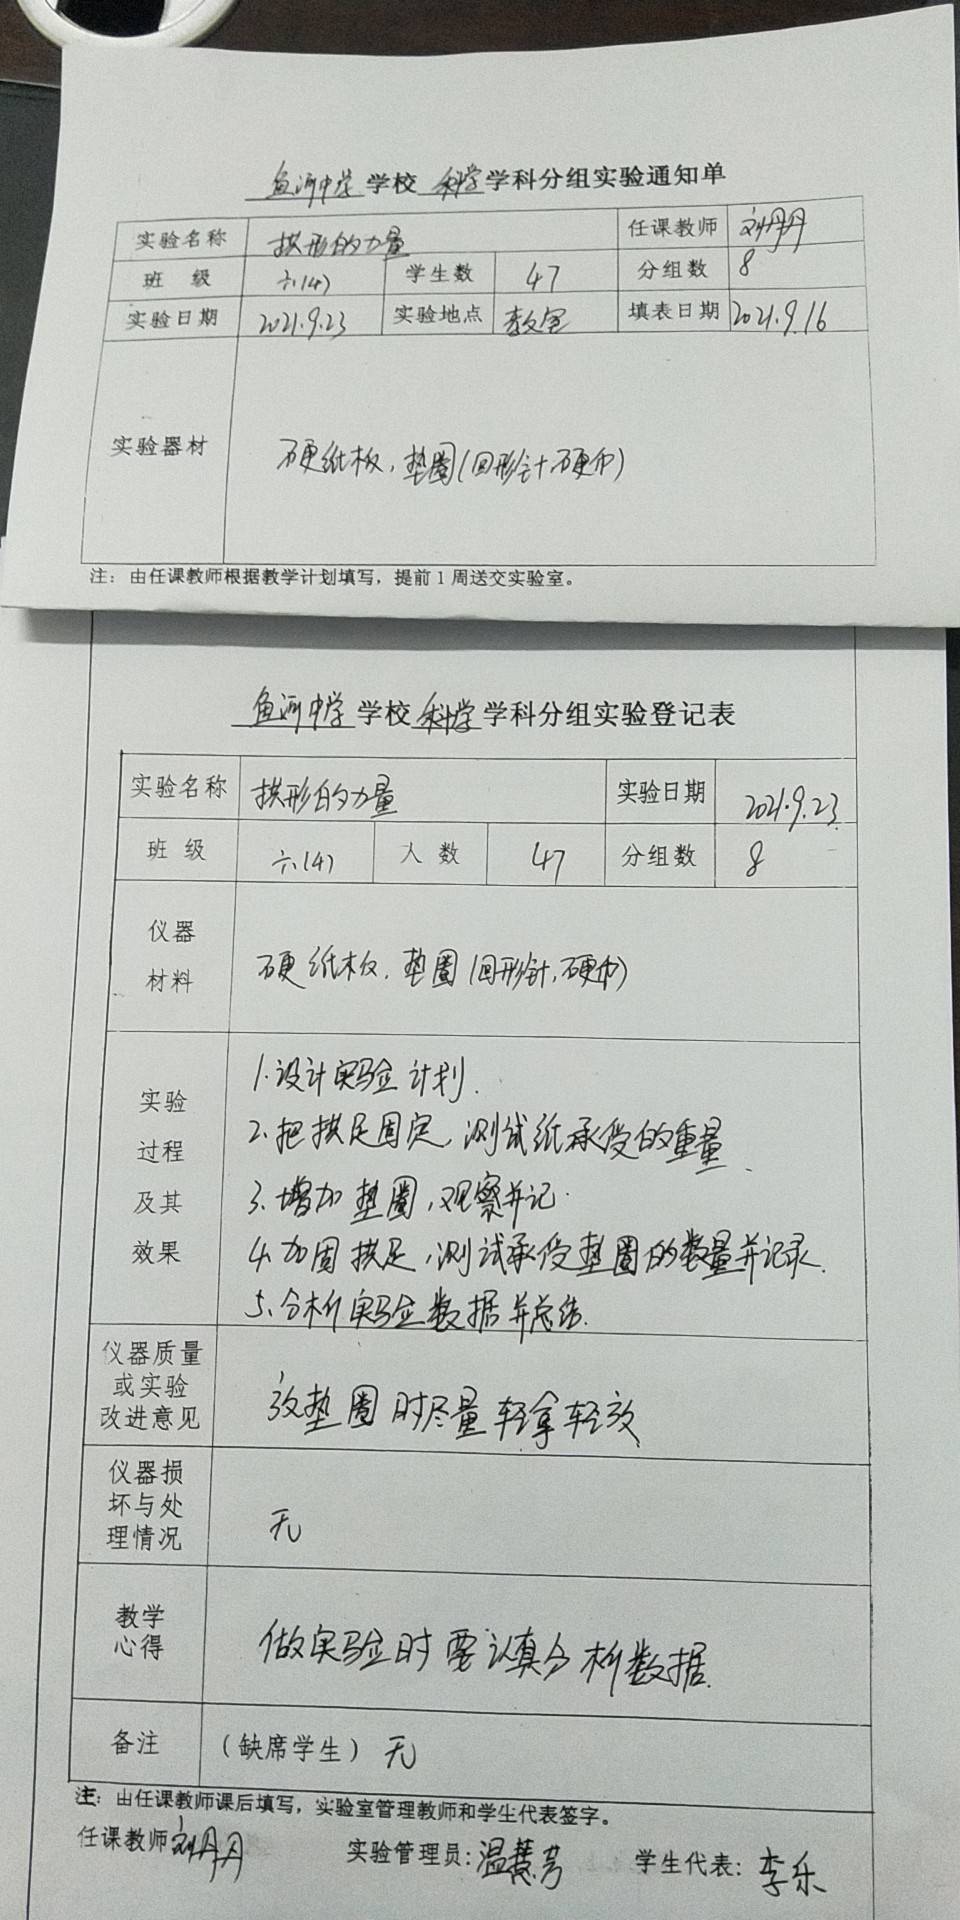 鱼河中学 学校 科学 学科分组实验通知单
实验名称 拱形的力量 任课教师 刘丹丹
班 级 六(4) 学生数 47 分组数 8
实验日期 2021.9.23 实验地点 教室 填表日期 2021.9.16
实验器材 硬纸板、垫圈(回形针、硬币)
注：由任课教师根据教学计划填写，提前1周送交实验室。
鱼河中学 学校 科学 学科分组实验登记表
实验名称 拱形的力量 实验日期 2021.9.23
班 级 六(4) 人 数 47 分组数 8
仪器
材料
硬纸板、垫圈(回形针、硬币)
实验
过程
及其
效果
1.设计实验计划.
2.把拱足固定,测试纸承受的重量、
3.增加垫圈,观察并记.
4.加固拱足,测试承受垫圈的数量并记录.
5.分析实验数据并总结.
仪器质量
或实验
改进意见
放垫圈时尽量轻拿轻放
仪器损
坏与处
理情况
无
教学
心得
做实验时要认真分析数据.
备注 (缺席学生) 无
注：由任课教师课后填写，实验室管理教师和学生代表签字。
任课教师 刘丹丹 实验管理员：温慧芳 学生代表：李乐